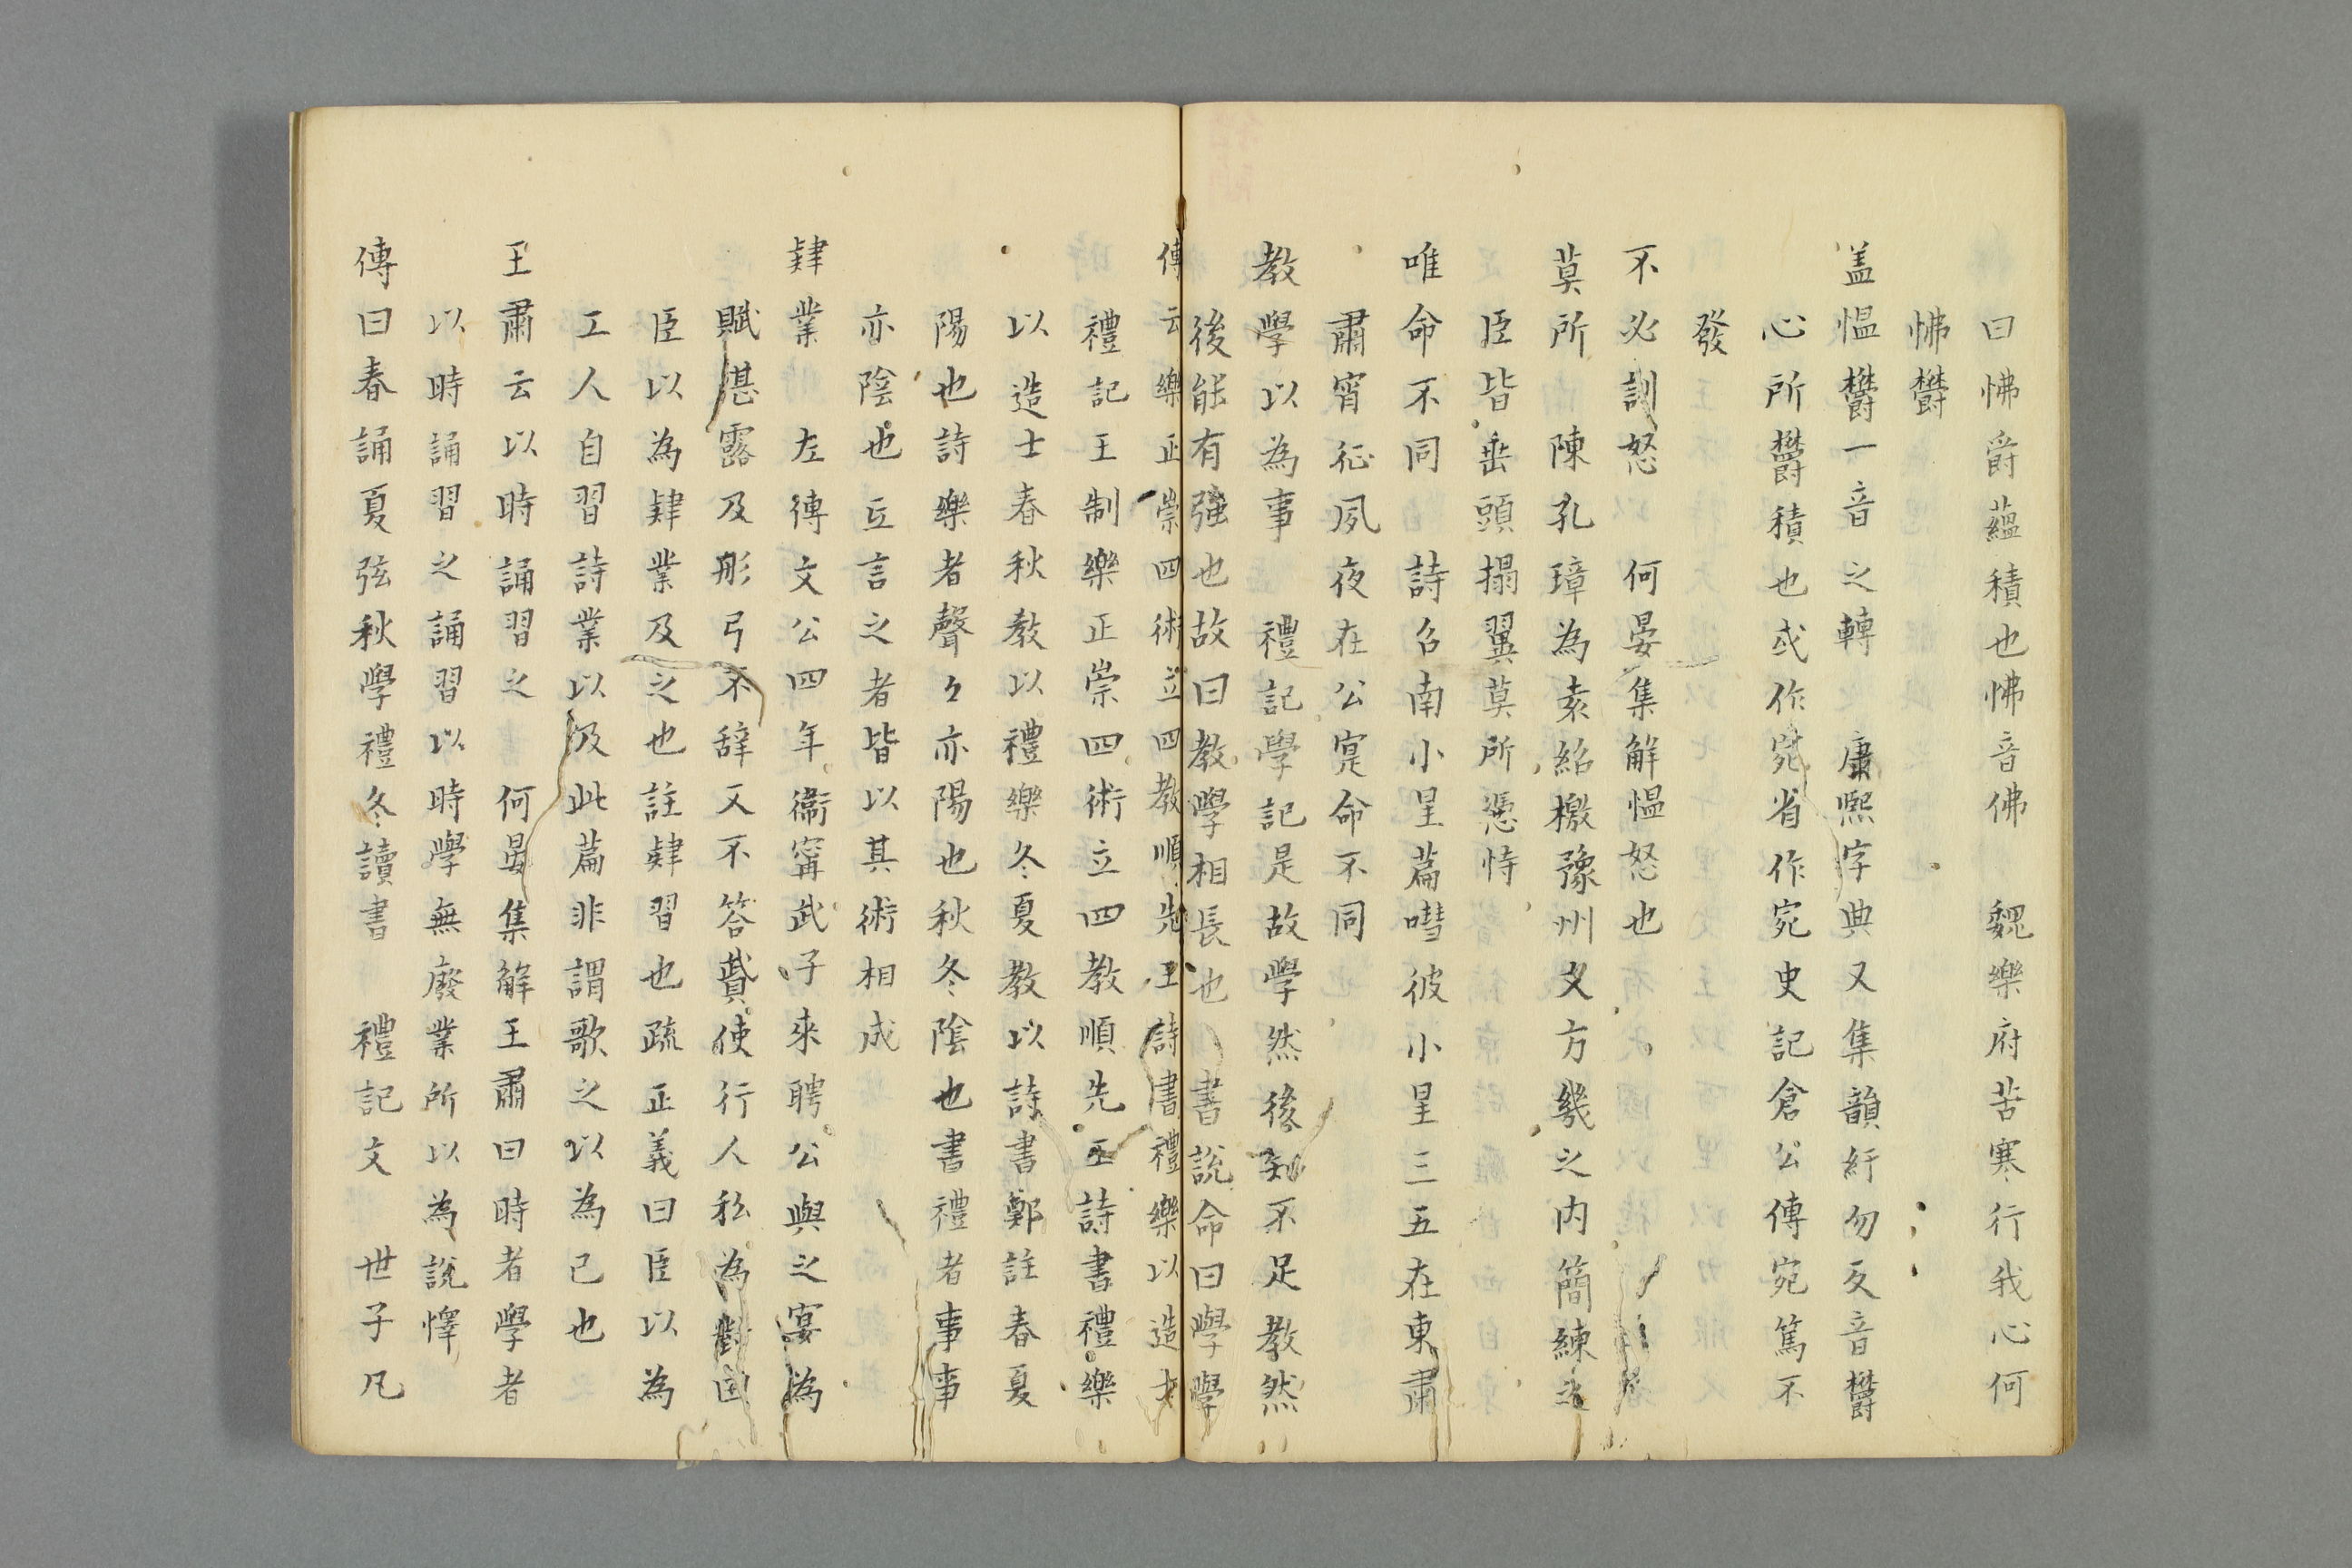 曰怫爵蘊積也怫音佛　魏樂府苦寒行我心何
怫欝
盖愠欝一音之轉　康熙字典又集韻紆勿反音欝
心所欝積也或作宛省作宛史記倉公傳宛篤不
發
不必訓怒　何晏集解愠怒也
莫所　陳孔璋為袁紹檄豫州文方畿之内簡練之
臣皆垂頭搨翼莫所憑恃
唯命不同　詩召南小星篇嘒彼小星三五在東肅
肅宵征夙夜在公寔命不同
教學以為事　禮記學記是故學然後知不足教然
後能有強也故曰教學相長也　書說命曰學學
傳云樂正崇四術立四教順先王詩書禮樂以造士
禮記王制樂正崇四術立四教順先王詩書禮樂
以造士春秋教以禮樂冬夏教以詩書鄭註春夏
陽也詩樂者聲々亦陽也秋冬陰也書禮者事事
亦陰也互言之者皆以其術相成
肄業　左傳文公四年衞甯武子來聘公與之宴為
賦湛露及彤弓不辭又不答賦使行人私為對曰
臣以為肄業及之也註肄習也疏正義曰臣以為
工人自習詩業以及此篇非謂歌之以為己也
王肅云以時誦習之　何晏集解王肅曰時者學者
以時誦習之誦習以時學無廢業所以為說懌
傳曰春誦夏弦秋學禮冬讀書　禮記文　世子凡